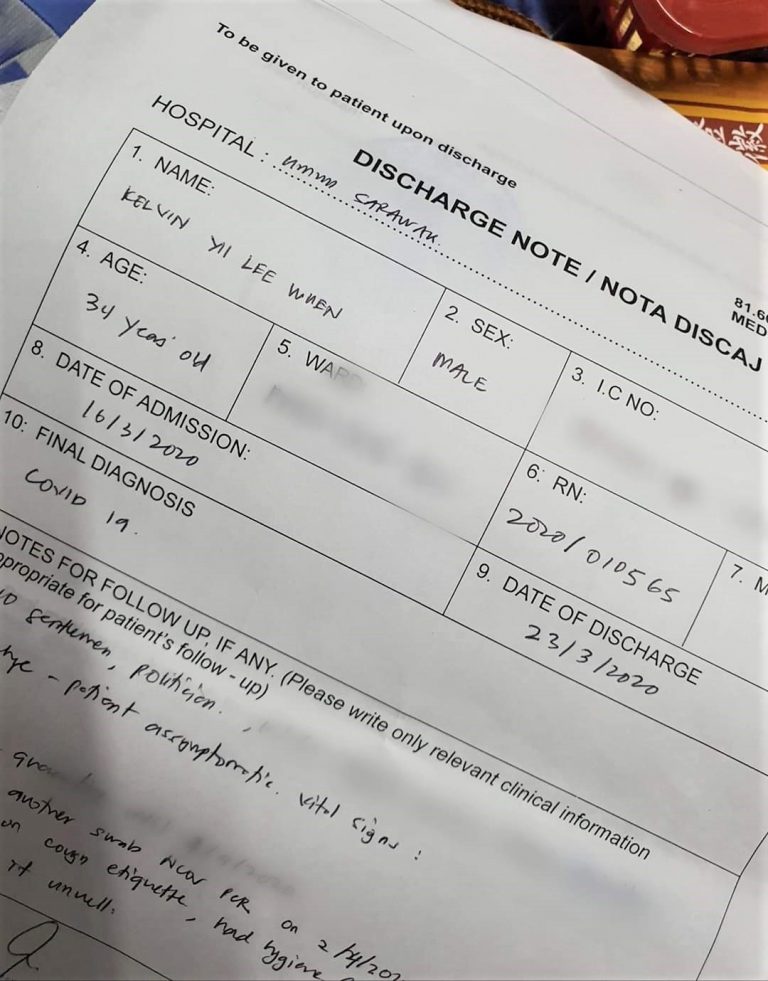 To be given to patient upon discharge
DISCHARGE NOTE / NOTA DISCAJ
HOSPITAL : umum SARAWAK
81.6
MED
1. NAME:
KELVIN YII LEE WUEN
2. SEX:
MALE
3. I.C NO:
4. AGE:
34 years old
5. WARD
6: RN:
2020/010565
7. M
8. DATE OF ADMISSION:
16/3/2020
9. DATE OF DISCHARGE
23/3/2020
10: FINAL DIAGNOSIS
COVID 19.
NOTES FOR FOLLOW UP, IF ANY. (Please write only relevant clinical information
ppropriate for patient's follow - up)
gentlemen, politician.
- patient assymptomatic. vital signs :
another swab nCoV PCR on 2/4/202
on cough etiquette, hand hygiene
if unwell.